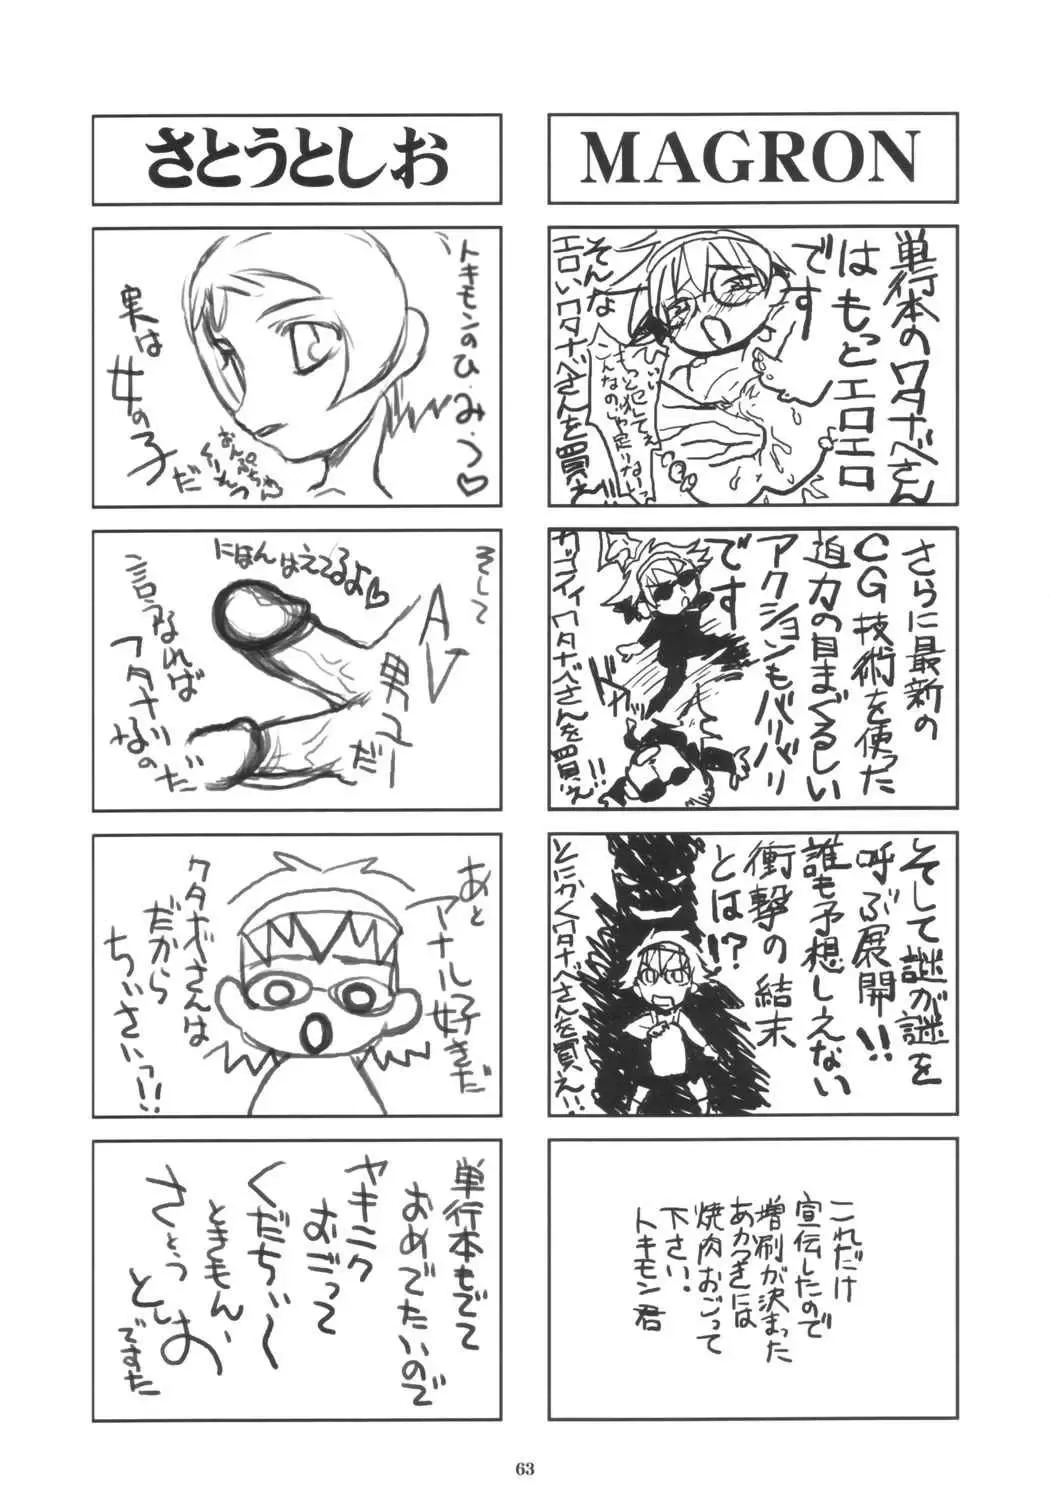 MAGRON
単行本のワタナベさん
はもっとエロエロ
です
そんな
エロいワタナベさんを買え!!
さらに最新の
CG技術を使った
迫力の目まぐるしい
アクションもバリバリ
です
カッコイイワタナベさんを買え!!
そして謎が謎を
呼ぶ展開!!
誰も予想しえない
衝撃の結末
とは!?
とにかくワタナベさんを買え!!
これだけ
宣伝したので
増刷が決まった
あかつきには
焼肉おごって
下さい!
トキモン君
さとうとしお
トキモンのひ・み・つ♡
実は
女の子
だ
そして
AV
男ユー
だ
にほんはえてるよ♡
言うなれば
フタナリ
なの
だ
あと
アナル好きだ
ワタナベさんは
だから
ちいさいっ!!
単行本もでて
おめでたいので
ヤキニク
おごって
くだちぃ〜
ときもん、
さとう
としお
ですた
63